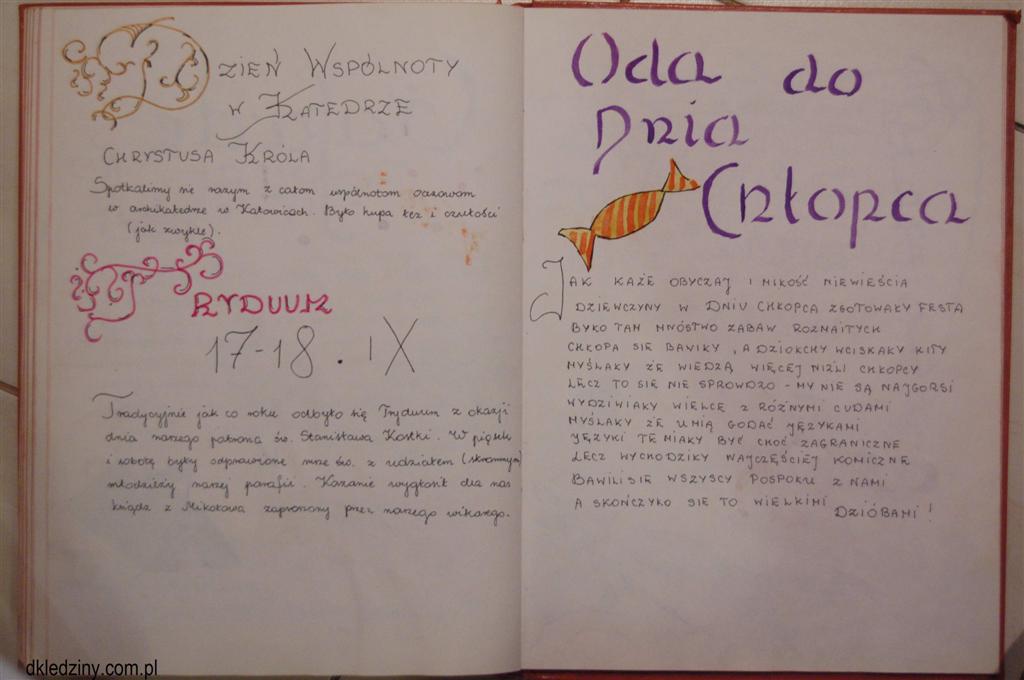 DZIEŃ WSPÓLNOTY
W KATEDRZE
CHRYSTUSA KRÓLA
Spotkalimy się razym z całom wspólnotom oazowom
w archikatedrze w Katowicach. Było kupa łez i czułości
(jak zwykle).
TRYDUUM
17-18. IX
Tradycyjnie jak co roku odbyło się Tryduum z okazji
dnia naszego patrona św. Stanisława Kostki. W piątek
i sobotę były odprawione msze św. z udziałem (skromnym)
młodzieży naszej parafii. Kazanie wygłosił dla nas
ksiądz z Mikołowa zaproszony przez naszego wikarego.
Oda do
Dnia
Chłopca
JAK KAŻE OBYCZAJ I MIŁOŚĆ NIEWIEŚCIA
DZIEWCZYNY W DNIU CHŁOPCA ZGOTOWAŁY FESTA
BYŁO TAM MNÓSTWO ZABAW ROZMAITYCH
CHŁOPA SIĘ BAWIŁY, A DZIOŁCHY WCISKAŁY KITY
MYŚLAŁY ŻE WIEDZĄ WIĘCEJ NIŻLI CHŁOPCY
LECZ TO SIĘ NIE SPROWDZO - MY NIE SĄ NAJGORSI
WYDZIWIAŁY WIELCE Z RÓŻNYMI CUDAMI
MYŚLAŁY ŻE UMIĄ GODAĆ JĘZYKAMI
JĘZYKI TE MIAŁY BYĆ CHOĆ ZAGRANICZNE
LECZ WYCHODZIŁY NAJCZĘŚCIEJ KOMICZNE
BAWILI SIĘ WSZYSCY POSPOŁU Z NAMI
A SKOŃCZYŁO SIĘ TO WIELKIMI DZIÓBAMI!
dkledziny.com.pl